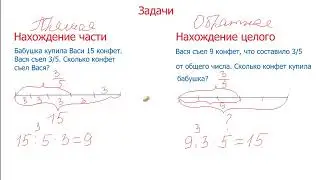 Задачи
Прямая
Нахождение части
Бабушка купила Васи 15 конфет.
Вася съел 3/5. Сколько конфет
съел Вася?
3/5
15
3
15 : 5 · 3 = 9
Обратная
Нахождение целого
Вася съел 9 конфет, что составило 3/5
от общего числа. Сколько конфет купила
бабушка?
3/5
?
3
9 : 3 · 5 = 15